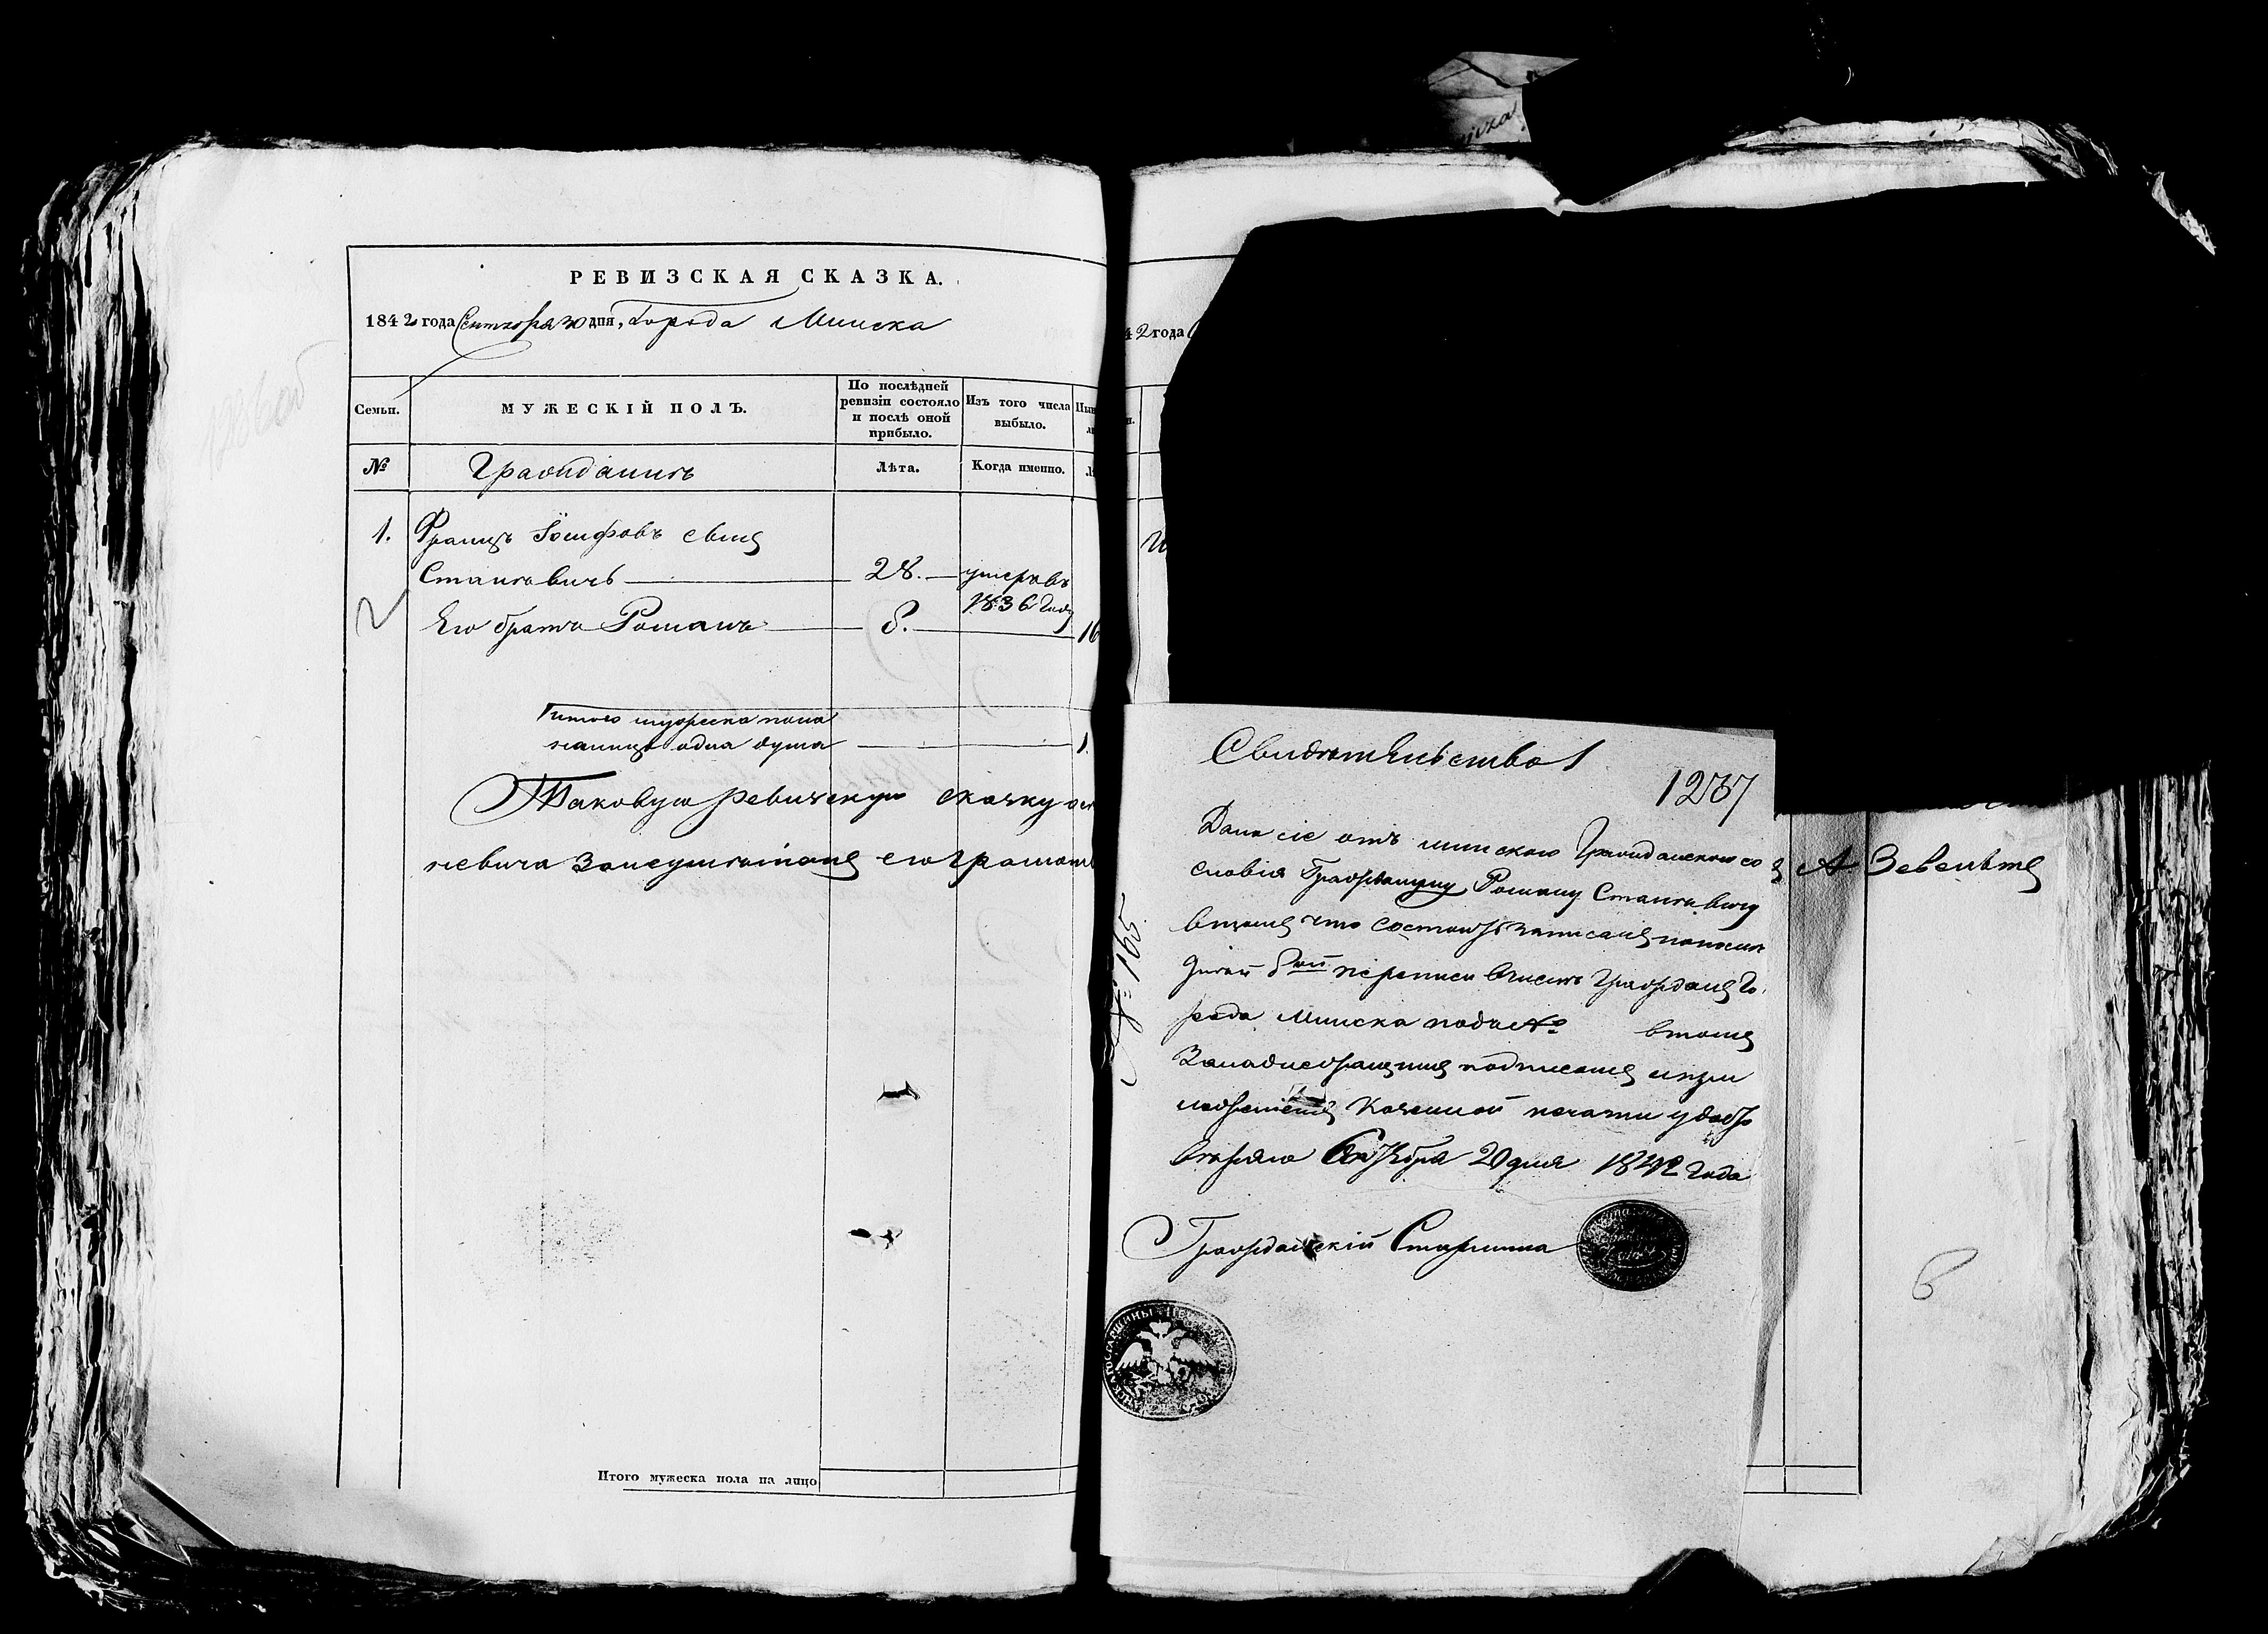 РЕВИЗСКАЯ СКАЗКА.
1842 года Сентября 30 дня, Города Минска
Семьи.
МУЖЕСКІЙ ПОЛЪ.
По послѣдней ревизіи состояло и послѣ оной прибыло.
Изъ того числа выбыло.
№
Гражданинъ
Лѣта.
Когда именно.
1.
Францъ Іосифовъ сынъ
Станкевичъ 28. умеръ въ
1836 году
Его братъ Романъ 8. 16
Итого мужеска пола
налицо одна душа 1.
Таковую ревизскую сказку
его грамотѣ
Итого мужеска пола на лицо
2 года
Свидѣтельство
1237
Дано сіе отъ минского Гражданского со
словія Гражданину Роману Станкевичу
втомъ что состоитъ записанъ попослѣ
дней 8ой переписи вчислѣ Гражданъ Го
рода Минска подъ № втомъ
Занадлежащимъ подписомъ и при
ложеніемъ Казенной печати удосто
вѣряю 20 дня 1842 года
Гражданскій Старшина
165
6